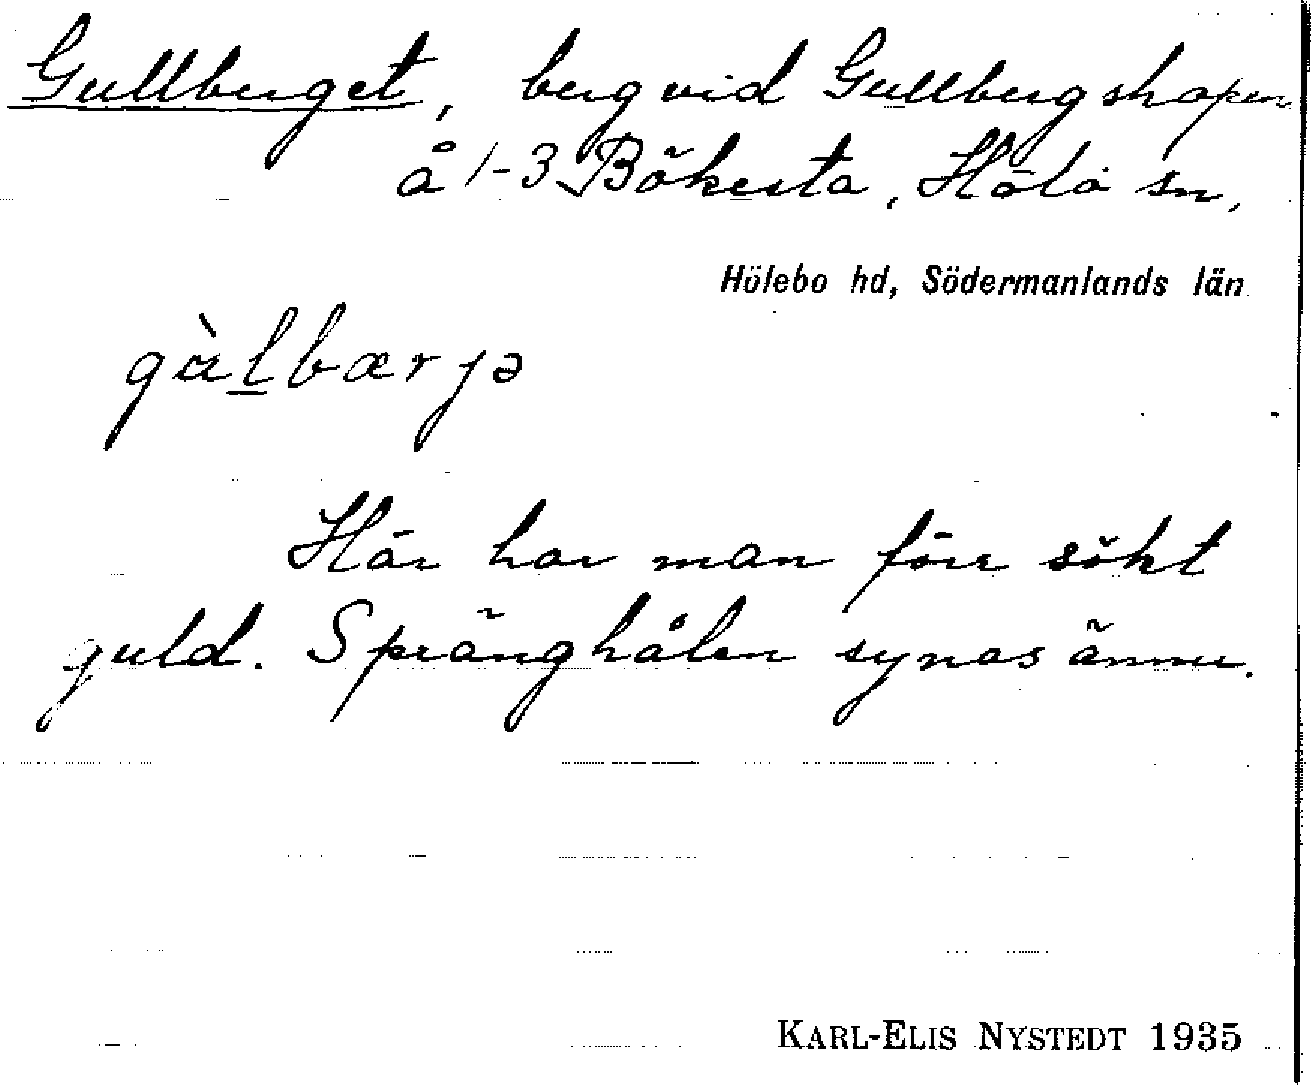 Gullberget, berg vid Gullbergskapen
å 1-3 Bökesta, Hölö sn,
Hölebo hd, Södermanlands län
gùlbærjə
Här har man förr sökt
guld. Spränghålen synas ännu.
KARL-ELIS NYSTEDT 1935